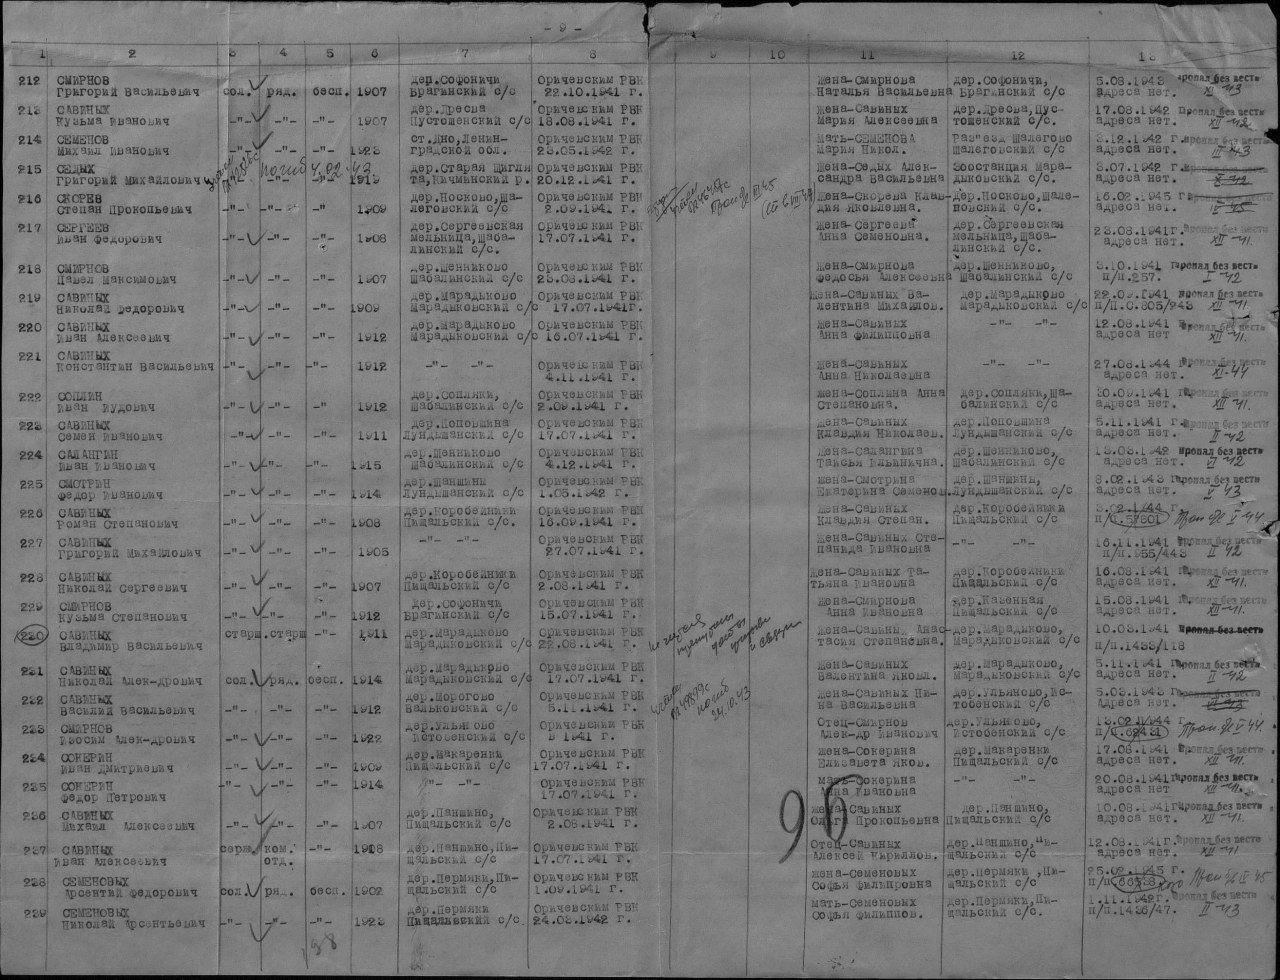 - 9 -
1 2 3 4 5 6 7 8 9 10 11 12 13
212 СМИРНОВ дер.Софоничи Оричевским РВК Жена-Смирнова дер.Софоничи, 5.08.1943 пропал без вести
Григорий Васильевич сол. ряд. бесп. 1907 Брагинский с/с 22.10.1941 г. Наталья Васильевна Брагинский с/с адреса нет. XI-43
213 САВИНЫХ дер.Дресва Оричевским РВК Жена-Савиных дер.Дресва,Пус- 17.08.1942 Пропал без вести
Кузьма Иванович -"- -"- -"- 1907 Пустошенский с/с 18.08.1941 г. Мария Алексеевна тошенский с/с. адреса нет. XII-42
214 СЕМЕНОВ ст.Дно,Ленин- Оричевским РВК Мать-СЕМЕНОВА Раз"езд Шалегово 3.12.1942 г. пропал без вести
Михаил Иванович -"- -"- -"- 1923 градской обл. 23.05.1942 г. Мария Никол. Шалеговский с/с адреса нет. III-43
215 СЕДЫХ погиб 4.02.43 дер.Старая Шигля Оричевским РВК Жена-Седых Алек- Зоостанция Мара- 3.07.1942 г. пропал без вести
Григорий Михайлович -"- -"- -"- 1919 та,Кичминский р. 20.12.1941 г. сандра Васильевна дыковский с/с. адреса нет.
216 СКОРЕВ дер.Носково,Ша- Оричевским РВК Жена-Скорева Клав- дер.Носково,Шале- 16.02.1945 г. пропал без вести
Степан Прокопьевич -"- -"- -"- 1909 леговский с/с 2.09.1941 г. дия Яковлевна. новский с/с. адреса нет. IV-45
217 СЕРГЕЕВ дер.Сергеевская Оричевским РВК Жена-Сергеева дер.Сергеевская 23.08.1941г. Пропал без вести
Иван Федорович -"- -"- -"- 1908 мельница,Шаба- 17.07.1941 г. Анна Семеновна. мельница,Шаба- адреса нет. XII-41.
линский с/с. линский с/с.
218 СМИРНОВ дер.Шенниково Оричевским РВК Жена-Смирнова дер.Шенниково, 3.10.1941 г. Пропал без вести
Павел Максимович -"- -"- -"- 1907 Шабалинский с/с 23.08.1941 г. Федосья Алексеевна Шабалинский с/с п/п.257. I-42
219 САВИНЫХ дер.Марадыково Оричевским РВК Жена-Савиных Ва- дер.Марадыково 22.09.1941 пропал без вести
Николай Федорович -"- -"- -"- 1909 Марадыковский с/с 17.07.1941г. лентина Михайлов. Марадыковский с/с п/п.0.805/943 XII-41.
220 САВИНЫХ дер.Марадыково Оричевским РВК Жена-Савиных -"- -"- 12.08.1941 г. Пропал без вести
Иван Алексеевич -"- -"- -"- 1912 Марадыковский с/с 16.07.1941 г. Анна Филипповна адреса нет. XII-41.
221 САВИНЫХ Жена-Савиных 27.08.1944 г. Пропал без вести
Константин Васильевич -"- -"- -"- 1912 -"- -"- Оричевским РВК -"- -"- адреса нет. XI-44
4.11.1941 г. Анна Николаевна
222 СОПЛИН дер.Сопляки, Оричевским РВК Жена-Соплина Анна дер.Сопляки,Ша- 30.09.1941 г. Пропал без вести
Иван Иудович -"- -"- -"- 1912 Шабалинский с/с 2.09.1941 г. Степановна. балинский с/с адреса нет. XII-41.
223 САВИНЫХ дер.Поповщина Оричевским РВК Жена-Савиных дер.Поповщина 5.11.1941 г. Пропал без вести
Семен Иванович -"- -"- -"- 1911 Лундышанский с/с 17.07.1941 г. Клавдия Николаев. Лундышанский с/с адреса нет. II-42
224 САЛАНГИН дер.Шенниково Оричевским РВК Жена-Салангина дер.Шенниково, 13.03.1942 Пропал без вести
Иван Иванович -"- -"- -"- 1915 Шабалинский с/с 4.12.1941 г. Таисья Ильинична. Шабалинский с/с адреса нет. VI-42
225 СМОТРИН дер.Шаншины Оричевским РВК Жена-Смотрина дер.Шаншины, 8.02.1943 г. Пропал без вести
Федор Иванович -"- -"- -"- 1914 Лундышанский с/с 1.05.1942 г. Екатерина Семенов. Лундышанский с/с адреса нет. V-43
226 САВИНЫХ дер.Коробейники Оричевским РВК Жена-Савиных дер.Коробейники 3.02.1944 г.
Роман Степанович -"- -"- -"- 1908 Пищальский с/с. 16.09.1941 г. Клавдия Степан. Пищальский с/с п/п.57801 V-44
227 САВИНЫХ -"- -"- Оричевским РВК Жена-Савиных Сте- -"- -"- 16.11.1941 Пропал без вести
Григорий Михайлович -"- -"- -"- 1905 27.07.1941 г. панида Ивановна п/п.955/443 II-42
228 САВИНЫХ дер.Коробейники Оричевским РВК Жена-Савиных Та- дер.Коробейники 16.08.1941 г. Пропал без вести
Николай Сергеевич -"- -"- -"- 1907 Пищальский с/с 2.08.1941 г. тьяна Ивановна Пищальский с/с адреса нет. XII-41.
229 СМИРНОВ дер.Софоничи Оричевским РВК Жена-Смирнова дер.Казенная 15.08.1941 г. Пропал без вести
Кузьма Степанович -"- -"- -"- 1912 Брагинский с/с 15.07.1941 г. Анна Ивановна Пищальский с/с адреса нет. XII-41.
230 САВИНЫХ старш. старш -"- 1911 дер.Марадыково Оричевским РВК Жена-Савиных Анас- дер.Марадыково, 10.03.1941 Пропал без вести
Владимир Васильевич Марадыковский с/с 22.08.1941 г. тасия Степановна. Марадыковский с/с п/п.1433/118
231 САВИНЫХ дер.Марадыково Оричевским РВК Жена-Савиных дер.Марадыково, 5.11.1941 г. Пропал без вести
Николай Алек-дрович сол. ряд. бесп. 1914 Марадыковский с/с 17.07.1941 г. Валентина Яковл. Марадыковский с/с адреса нет. II-42
232 САВИНЫХ дер.Морогово Оричевским РВК Жена-Савиных Ни- дер.Ульяново,Ис- 5.03.1943 г. Пропал без вести
Василий Васильевич -"- -"- -"- 1912 Вальковский с/с 5.11.1941 г. на Васильевна тобенский с/с адреса нет.
погиб 24.10.43
233 СМИРНОВ дер.Ульяново Оричевским РВК Отец-Смирнов дер.Ульяново, 13.02.1944 г.
Изосим Алек-дрович -"- -"- -"- 1922 Истобенский с/с в 1941 г. Алек-др Иванович Истобенский с/с п/п.62431 V-44.
234 СОКЕРИН дер.Макаренки Оричевским РВК Жена-Сокерина дер.Макаренки 17.08.1941 Пропал без вести
Иван Дмитриевич -"- -"- -"- 1909 Пищальский с/с 17.07.1941 г. Елизавета Яков. Пищальский с/с адреса нет. XII-41.
235 СОКЕРИН -"- -"- -"- 1914 -"- -"- Оричевским РВК Мать-Сокерина -"- -"- 20.08.1941 г. Пропал без вести
Федор Петрович 17.07.1941 г. Анна Ивановна адреса нет XII-41.
236 САВИНЫХ дер.Паншино, Оричевским РВК Жена-Савиных дер.Паншино, 10.08.1941 г. Пропал без вести
Михаил Алексеевич -"- -"- -"- 1907 Пищальский с/с 2.08.1941 г. Ольга Прокопьевна Пищальский с/с адреса нет. XII-41.
96
237 САВИНЫХ серж. ком. -"- 1918 дер.Паншино,Пи- Оричевским РВК Отец-Савиных дер.Паншино,Пи- 12.08.1941г. Пропал без вести
Иван Алексеевич отд. щальский с/с 17.07.1941 г. Алексей Кириллов. щальский с/с адреса нет. XII-41
238 СЕМЕНОВЫХ дер.Пермяки,Пи- Оричевским РВК Жена-Семеновых дер.Пермяки,Пи- 25.02.1945 г.
Арсентий Федорович сол. ряд. бесп. 1902 щальский с/с 1.09.1941 г. Софья Филипровна щальский с/с IV-45
239 СЕМЕНОВЫХ дер.Пермяки Оричевским РВК Мать-Семеновых дер.Пермяки,Пи- 1.11.1942г. Пропал без вести
Николай Арсентьевич -"- -"- -"- 1923 Пищальский с/с 24.03.1942 г. Софья Филиппов. щальский с/с. п/п.1436/47. II-43